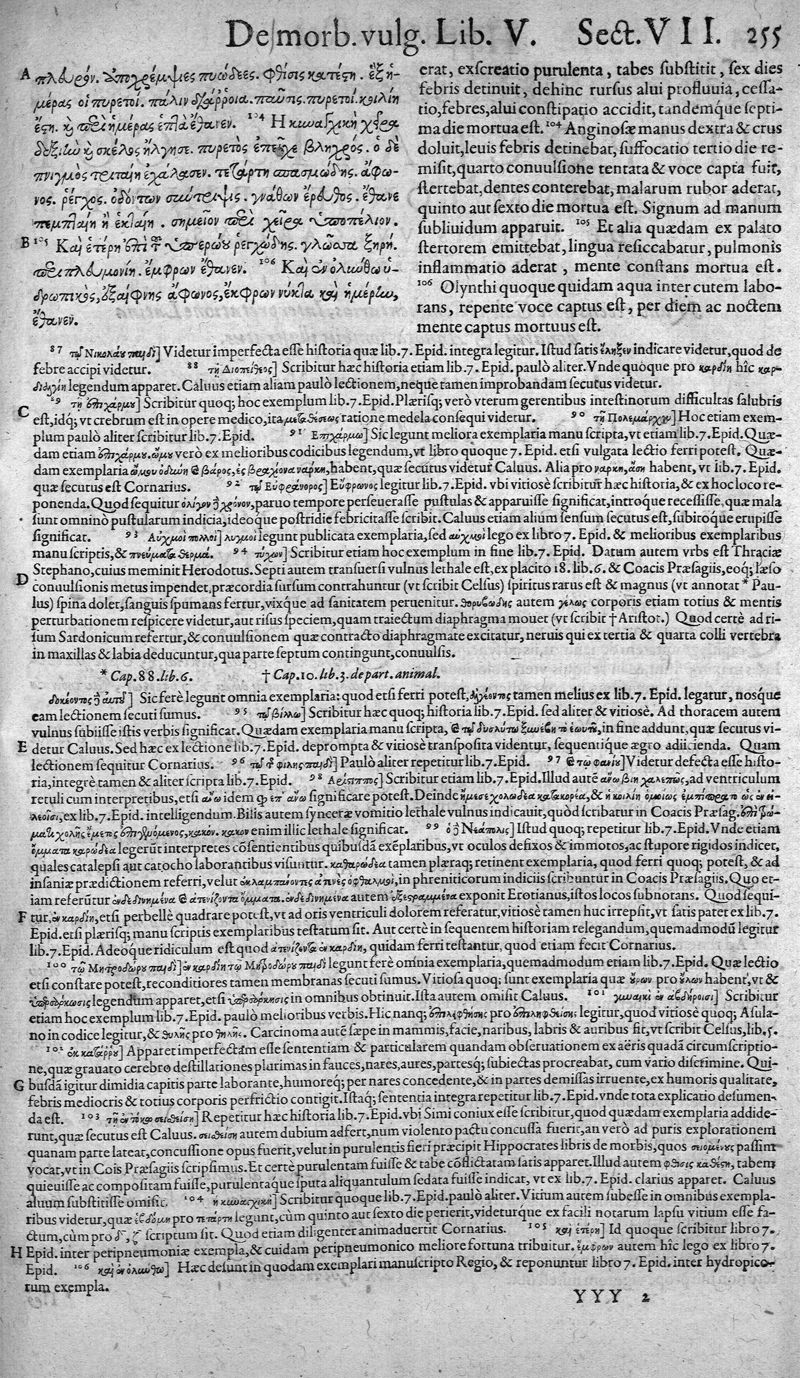 De morb. vulg. Lib. V. Sect. VII. 255
A πλευρόν. ἀποχρέμψιες πυώδεες. φθίσις κατέστη. ἓξ ἡ-
μέρας οἱ πυρετοί. πάλιν διάρροια. παῦσις. πυρετοί. κοιλίη
ἔστη. καὶ περὶ ἡμέρας ἑπτὰ ἔθανεν. 104 Η κυναγχικὴ χεῖρα
δεξιὴν καὶ σκέλος ἤλγησε. πυρετὸς ἐπεῖχε βληχρός. ὁ δὲ
πνιγμὸς τριταίη ἐχάλασεν. τετάρτη σπασμώδης. ἄφω-
νος. ῥέγχος. ὀδόντων σύντριψις. γνάθων ἔρευθος. ἔθανε
πεμπταίη ἢ ἑκταίη. σημεῖον περὶ χεῖρα ὑποπέλιον.
B 105 Καὶ ἑτέρη ἀπὸ τῆς ὑπερώης ῥεγχώδης. γλῶσσα ξηρή.
περιπλευμονίη. ἔμφρων ἔθανεν. 106 Καὶ ἐν ὀλύνθῳ ὑ-
δρωπικὸς, ἐξαίφνης ἄφωνος, ἔκφρων νύκτα καὶ ἡμέρην,
ἔθανεν.
erat, exscreatio purulenta, tabes substitit, sex dies
febris detinuit, dehinc rursus alui profluuia, cessa-
tio, febres, alui constipatio accidit, tandemque septi-
ma die mortua est. 104 Anginosæ manus dextra & crus
doluit, leuis febris detinebat, suffocatio tertio die re-
misit, quarto conuulsione tentata & voce capta fuit,
stertebat, dentes conterebat, malarum rubor aderat,
quinto aut sexto die mortua est. Signum ad manum
subliuidum apparuit. 105 Et alia quædam ex palato
stertorem emittebat, lingua resiccabatur, pulmonis
inflammatio aderat, mente constans mortua est.
106 Olynthi quoque quidam aqua inter cutem labo-
rans, repente voce captus est, per diem ac noctem
mente captus mortuus est.
87 τῷ Νικολάου παιδὶ] Videtur imperfecta esse historia quæ lib. 7. Epid. integra legitur. Istud satis ἔληξεν indicare videtur, quod de
febre accipi videtur. 88 τῇ Διοπείθεος] Scribitur hæc historia etiam lib. 7. Epid. paulò aliter. Vnde quoque pro καρδίη hîc καρ-
legendum apparet. Caluus etiam aliam paulò lectionem, neque tamen improbandam secutus videtur.
89 τῇ ἐπιχάρμου] Scribitur quoq; hoc exemplum lib. 7. Epid. Plærisq; verò vterum gerentibus intestinorum difficultas salubris
C est, idq; vt crebrum est in opere medico, ita ratione medela consequi videtur. 90 τῇ Πολεμάρχου] Hoc etiam exem-
plum paulò aliter scribitur lib. 7. Epid. 91 Επιχάρμῳ] Sic legunt meliora exemplaria manu scripta, vt etiam lib. 7. Epid. Quæ-
dam etiam vero ex melioribus codicibus legendum, vt libro quoque 7. Epid. etsi vulgata lectio ferri potest. Quæ-
dam exemplaria habent, quæ secutus videtur Caluus. Alia pro ναρκη, habent, vt lib. 7. Epid.
quæ secutus est Cornarius. 92 τῷ Εὐφράνορος] Εὔφρονος legitur lib. 7. Epid. vbi vitiosè scribitur hæc historia, & ex hoc loco re-
ponenda. Quod sequitur ὀλίγον χρόνον, paruo tempore perseuerasse pustulas & apparuisse significat, introque recessisse, quæ mala
sunt omninò pustularum indicia, ideoque postridie febricitasse scribit. Caluus etiam alium sensum secutus est, subitoque erupisse
significat. 93 Αὐχμοὶ πολλοὶ] λυγμοὶ legunt publicata exemplaria, sed αὐχμοὶ lego ex libro 7. Epid. & melioribus exemplaribus
manuscriptis, & πνεύματα θερμά. 94 τύχων] Scribitur etiam hoc exemplum in fine lib. 7. Epid. Datum autem vrbs est Thraciæ
D Stephano, cuius meminit Herodotus. Septi autem transuersi vulnus lethale est, ex placito 18. lib. 6. & Coacis Præsagiis, eoq; læso
conuulsionis metus impendet, præcordia sursum contrahuntur (vt scribit Celsus) spiritus rarus est & magnus (vt annotat * Pau-
lus) spina dolet, sanguis spumans fertur, vixque ad sanitatem peruenitur. θορυβώδης autem γέλως corporis etiam totius & mentis
perturbationem respicere videtur, aut risus speciem, quam traiectum diaphragma mouet (vt scribit † Aristot.) Quod certè ad ri-
sum Sardonicum refertur, & conuulsionem quæ contracto diaphragmate excitatur, neruis qui ex tertia & quarta colli vertebra
in maxillas & labia deducuntur, qua parte septum contingunt, conuulsis.
* Cap. 88. lib. 6. † Cap. 10. lib. 3. de part. animal.
Sic ferè legunt omnia exemplaria: quod etsi ferri potest, tamen melius ex lib. 7. Epid. legatur, nosque
eam lectionem secuti sumus. 95 τῷ βίλλῳ] Scribitur hæc quoq; historia lib. 7. Epid. sed aliter & vitiosè. Ad thoracem autem
vulnus subiisse istis verbis significatur. Quædam exemplaria manu scripta, in fine addunt, quæ secutus vi-
E detur Caluus. Sed hæc ex lectione lib. 7. Epid. deprompta & vitiosè transposita videntur, sequentique ægro adiicienda. Quam
lectionem sequitur Cornarius. 96 Paulò aliter repetitur lib. 7. Epid. 97 Videtur defecta esse histo-
ria, integrè tamen & aliter scripta lib. 7. Epid. 98 Scribitur etiam lib. 7. Epid. Illud autē ad ventriculum
retuli cum interpretibus, etsi ἄνω idem significare potest. Deinde
ex lib. 7. Epid. intelligendum. Bilis autem synceræ vomitio lethale vulnus indicauit, quòd scribatur in Coacis Præsag.
enim illic lethale significat. 99 Istud quoq; repetitur lib. 7. Epid. Vnde etiam
ὄμματα legerūt interpretes cōsentientibus quibusdā exēplaribus, vt oculos defixos & immotos, ac stupore rigidos indicet,
quales catalepsi aut catocho laborantibus visuntur. tamen plæraq; retinent exemplaria, quod ferri quoq; potest, & ad
insaniæ prædictionem referri, velut in phreniticorum indiciis scribuntur in Coacis Præsagiis. Quo et-
iam referūtur autem exponit Erotianus, istos locos subnotans. Quod sequi-
F tur, ἐν καρδίῃ, etsi perbellè quadrare potest, vt ad oris ventriculi dolorem referatur, vitiosè tamen huc irrepsit, vt satis patet ex lib. 7.
Epid. etsi plærisq; manu scriptis exemplaribus testatum sit. Aut certè in sequentem historiam relegandum, quemadmodū legitur
lib. 7. Epid. Adeoque ridiculum est quod quidam ferri testantur, quod etiam fecit Cornarius.
100 τῷ Μητροδώρου παιδὶ] legunt ferè omnia exemplaria, quemadmodum etiam lib. 7. Epid. Quæ lectio
etsi constare potest, reconditiores tamen membranas secuti sumus. Vitiosa quoq; sunt exemplaria quæ habent, vt &
ὑποσάρκωσις legendum apparet, etsi in omnibus obtinuit. Ista autem omisit Caluus. 101 γυναικὶ ἐν ἀβδήροισι] Scribitur
etiam hoc exemplum lib. 7. Epid. paulò melioribus verbis. Hic nanq; legitur, quod vitiosè quoq; in Asula-
no in codice legitur, & θυλῆς pro θηλῆς. Carcinoma autē sæpe in mammis, facie, naribus, labris & auribus fit, vt scribit Celsus, lib. 5.
102 ἐκ κατάρρου] Apparet imperfectam esse sententiam & particularem quandam obseruationem ex aëris quadā circumscriptio-
ne, quæ grauato cerebro destillationes plurimas in fauces, nares, aures, partesq; subiectas procreabat, cum vario discrimine. Qui-
G busdā igitur dimidia capitis parte laborante, humoreq; per nares concedente, & in partes demissas irruente, ex humoris qualitate,
febris mediocris & totius corporis perfrictio contigit. Istaq; sententia integra repetitur lib. 7. Epid. vnde tota explicatio desumen-
da est. 103 Repetitur hæc historia lib. 7. Epid. vbi Simi coniux esse scribitur, quod quædam exemplaria addide-
runt, quæ secutus est Caluus. σεισθείσῃ autem dubium adfert, num violento partu concussa fuerit, an verò ad puris explorationem
quanam parte lateat, concussione opus fuerit, velut in purulentis fieri præcipit Hippocrates libris de morbis, quos passim
vocat, vt in Cois Præsagiis scripsimus. Et certè purulentam fuisse & tabe cōflictatam satis apparet. Illud autem tabem
quieuisse ac compositam fuisse, purulentaque sputa aliquantulum sedata fuisse indicat, vt ex lib. 7. Epid. clarius apparet. Caluus
aluum substitisse omisit. 104 ἡ κυναγχικὴ] Scribitur quoque lib. 7. Epid. paulò aliter. Vitium autem subesse in omnibus exempla-
ribus videtur, quæ ἑβδόμη pro πέμπτη legunt, cùm quinto aut sexto die perierit, videturque ex facili notarum lapsu vitium esse fa-
ctum, cùm pro ε, ζ scriptum sit. Quod etiam diligenter animaduertit Cornarius. 105 καὶ ἑτέρη] Id quoque scribitur libro 7.
H Epid. inter peripneumoniæ exempla, & cuidam peripneumonico meliore fortuna tribuitur. ἔμφρων autem hîc lego ex libro 7.
Epid. 106 καὶ ἐν ὀλύνθῳ] Hæc desunt in quodam exemplari manuscripto Regio, & reponuntur libro 7. Epid. inter hydropico-
rum exempla.
YYY 2